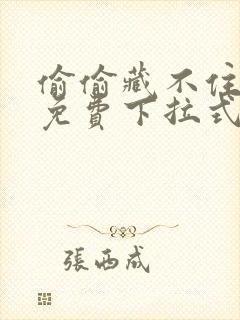 偷偷藏不住
免費下拉式
張西成